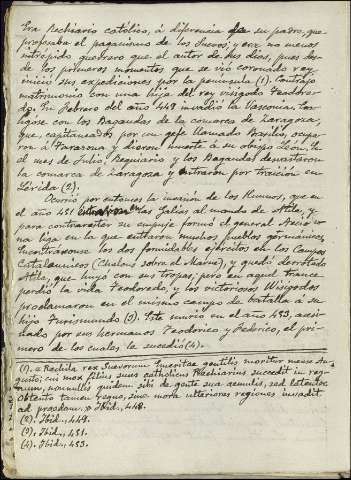 Era Rechiario católico, á diferencia de su padre, que
profesaba el paganismo de los Suevos, y era no menos
intrépido guerrero que el autor de sus dias, pues des-
de los primeros momentos que se vió coronado rey
inició sus expediciones por la península (1). Contrajo
matrimonio con una hija del rey visigodo Teodore-
do. En Febrero del año 449 invadió la Vasconia, coa-
ligóse con los Bagaudas de la comarca de Zaragoza,
que, capitaneados por un gefe llamado Basilio, ocupa-
ron á Tarazona y dieron muerte á su obispo León. En
el mes de Julio Requiario y los Bagaudas devastaron
la comarca de Zaragoza y entraron por traición en
Lérida (2).
Ocurrió por entonces la invasión de los Hunnos, que en
el año 451 entraron en las Galias al mando de Atila, y
para contrarestar su empuje formó el general Aecio u-
na liga en la que entraron muchos pueblos germánicos.
Encontráronse los dos formidables ejércitos en los Campos
Cataláunicos (Chalons sobre el Marne), y quedó derrotado
Atila, que huyó con sus tropas; pero en aquel trance
perdió la vida Teodoredo, y los victoriosos Visigodos
proclamaron en el mismo campo de batalla á su
hijo Turismundo (3). Este murió en el año 453, asesi-
nado por sus hermanos Teodorico y Federico, el pri-
mero de los cuales le sucedió (4).
(1). «Rechila rex Suevorum Emeritae gentilis moritur mense Au-
gusto; cui mox filius suus catholicus Rechiarius succedit in reg-
num, nonnullis quidem sibi de gente sua aemulis, sed latenter.
Obtento tamen regno, sine mora ulteriores regiones invadit
ad praedam.» Ibid., 448.
(2). Ibid., 449.
(3). Ibid., 451.
(4). Ibid., 453.